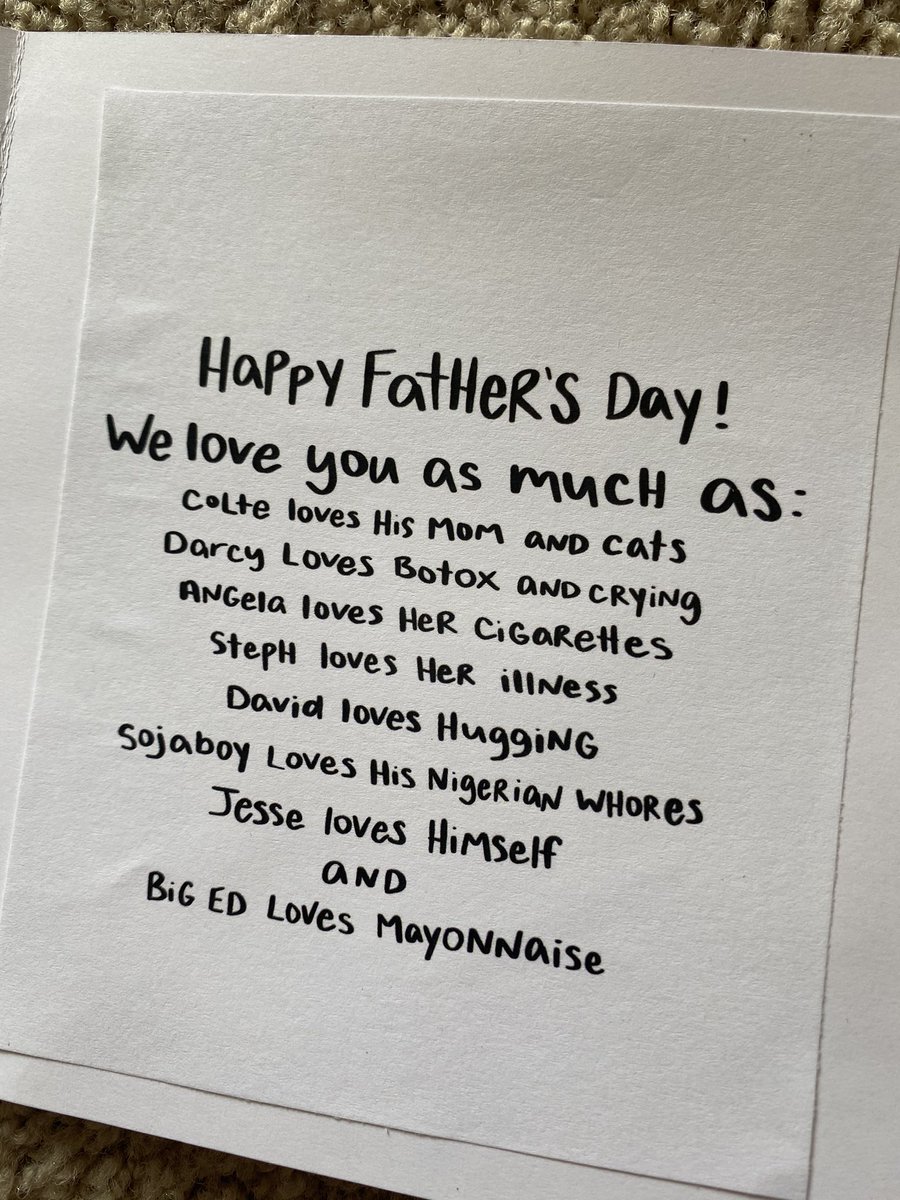 Happy Father's Day!
We love you as much as:
Colte loves His Mom and cats
Darcy Loves Botox and crying
Angela loves Her Cigarettes
Steph loves Her illness
David loves Hugging
Sojaboy Loves His Nigerian Whores
Jesse loves Himself
and
Big Ed Loves Mayonnaise